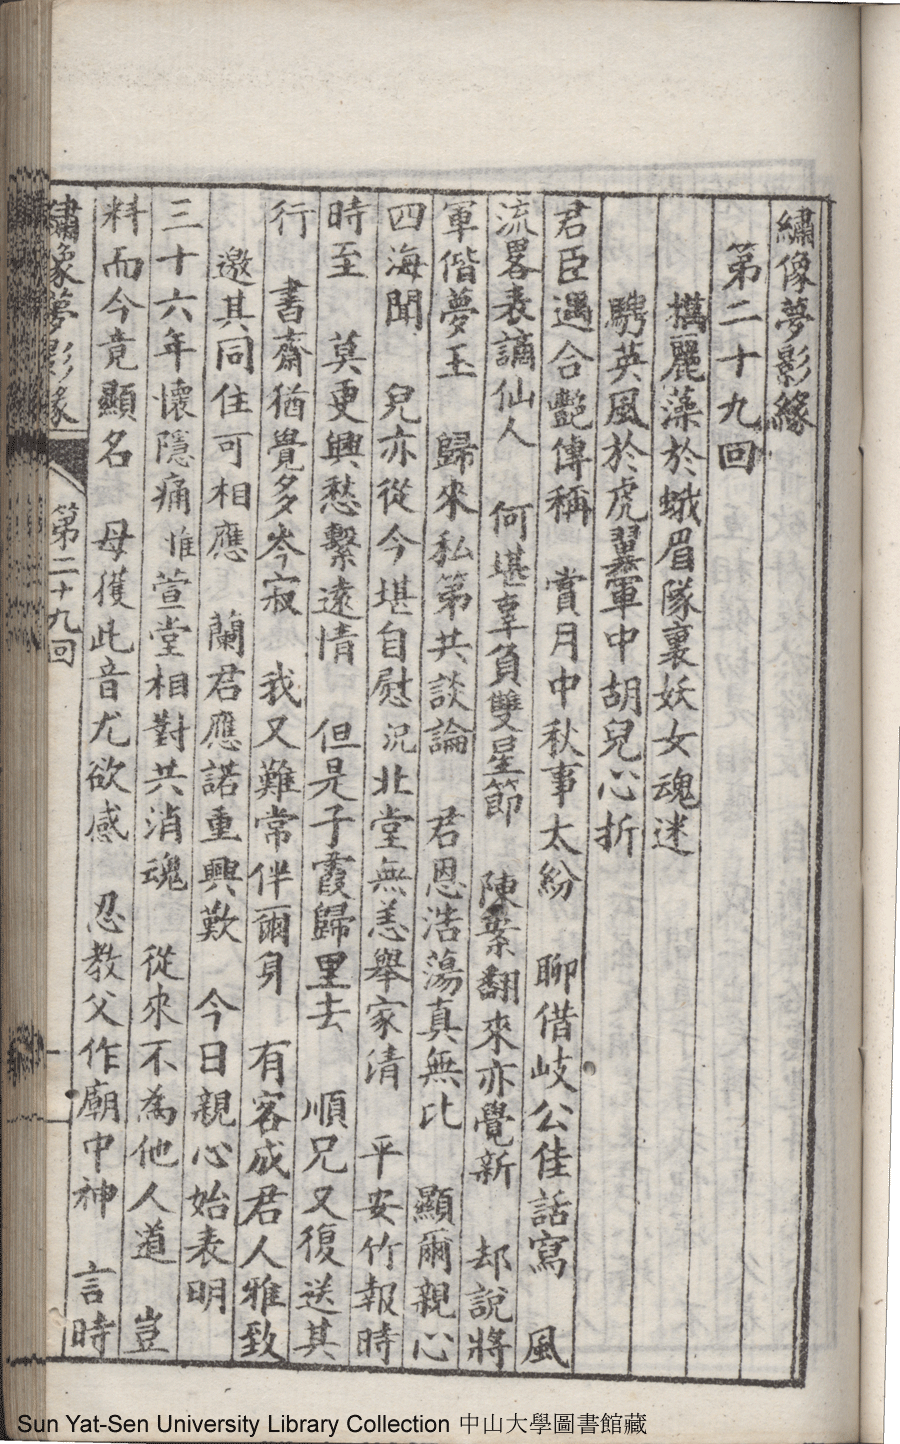 繡像夢影緣
第二十九回
摛麗藻於蛾眉隊裏妖女魂迷
騁英風於虎翼軍中胡兒心折
君臣遇合艷傳稱 賞月中秋事太紛 聊借岐公佳話寫 風
流畧表謫仙人 何堪辜負雙星節 陳案翻來亦覺新 却說將
軍偕夢玉 歸來私第共談論 君恩浩蕩真無比 顯爾親心
四海聞 兒亦從今堪自慰 況北堂無恙舉家清 平安竹報時
時至 莫更興愁繫遠情 但是子霞歸里去 順兄又復送其
行 書齋猶覺多岑寂 我又難常伴爾身 有客成君人雅致
邀其同住可相應 蘭君應諾重興歎 今日親心始表明
三十六年懷隱痛 惟萱堂相對共消魂 從來不為他人道 豈
料而今竟顯名 母獲此音尤欲感 忍教父作廟中神 言時
繡像夢影緣 第二十九回
Sun Yat-Sen University Library Collection 中山大學圖書館藏